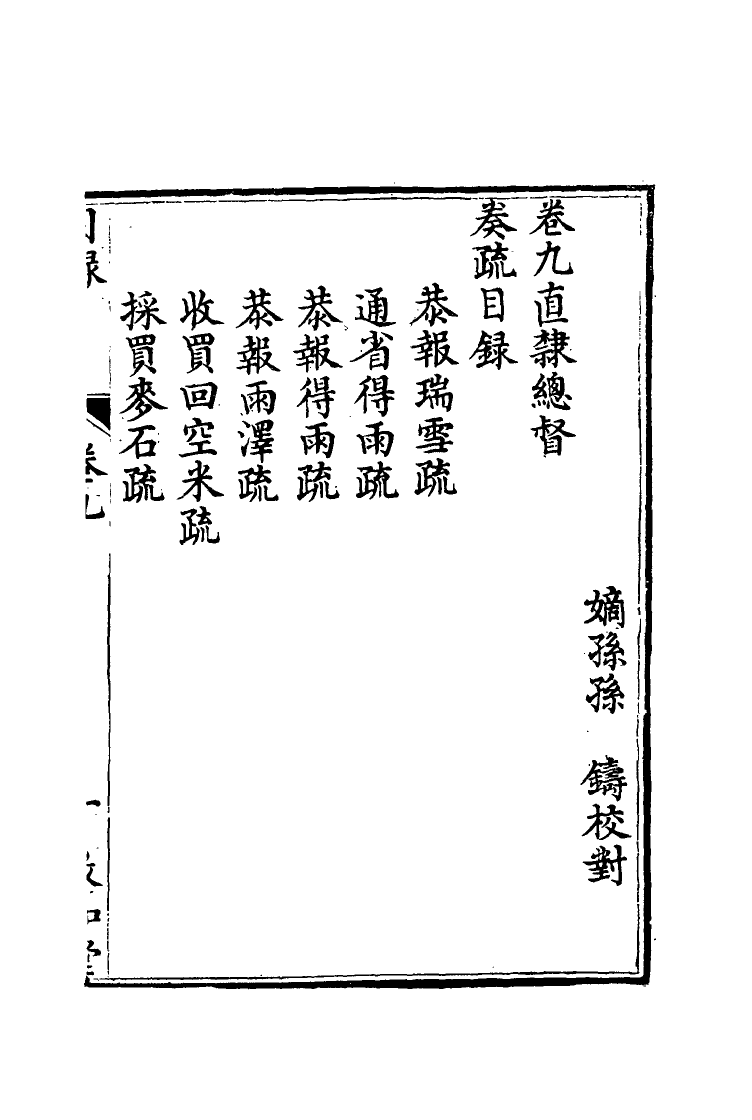 嫡孫孫　鑄校對
卷九直隸總督
奏疏目録
恭報瑞雪疏
通省得雨疏
恭報得雨疏
恭報雨澤疏
收買回空米疏
採買麥石疏
目録
卷九
一